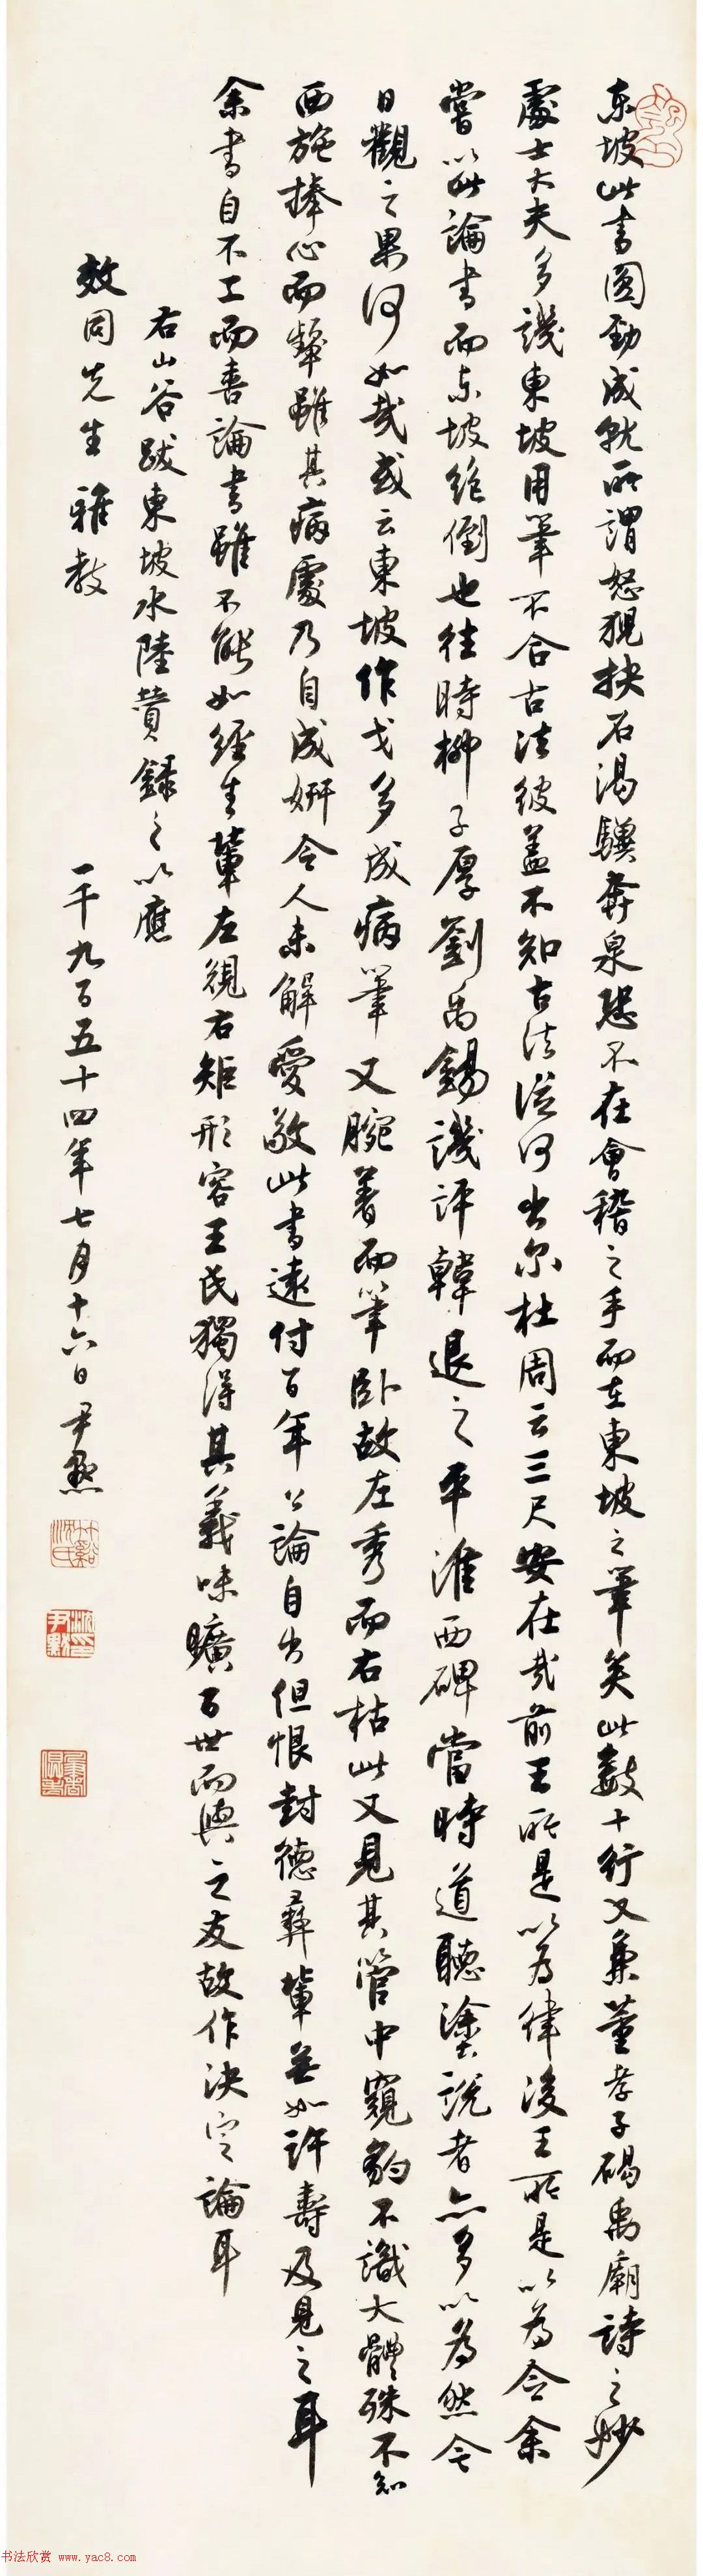 东坡此書圆勁成就所謂怒猊抉石渴驥奔泉恐不在會稽之手而在東坡之筆矣此數十行又兼董孝子碣禹廟詩之妙
處士大夫多譏東坡用筆不合古法彼蓋不知古法從何出尔杜周云三尺安在哉前王所是以為律後王所是以為令余
嘗以此論書而东坡絶倒也往時柳子厚劉禹錫譏評韓退之平淮西碑當時道聽塗說者亦多以為然今
日觀之果何如哉或云東坡作戈多成病筆又腕著而筆卧故左秀而右枯此又見其管中窺豹不識大體殊不知
西施捧心而顰雖其病處乃自成妍今人未解愛敬此書遠付百年公論自出但恨封德彝輩無如許壽及見之耳
余書自不工而喜論書雖不能如經生輩左規右矩形容王氏獨得其義味曠百世而與之友故作決定論耳
右山谷跋東坡水陸贊録之以應
效同先生雅教
一千九百五十四年七月十六日尹默
竹谿沈氏
沈尹默印
书法欣赏 www.yac8.com